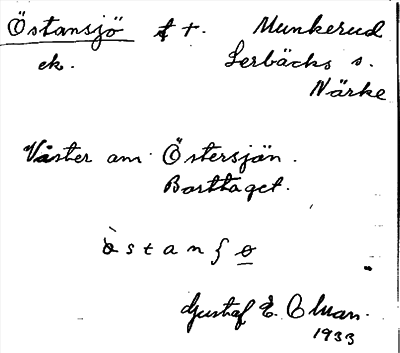 Östansjö t +. Munkerud
ek. Lerbäcks s.
Närke
Väster om Östersjön.
Borttaget.
östanʃö
Gustaf E.
1933